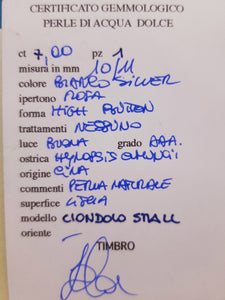 CERTIFICATO GEMMOLOGICO
PERLE DI ACQUA DOLCE
ct 7,00 pz 1
misura in mm 10/11
colore BIANCO SILVER
ipertono ROSA
forma HIGH BUTTON
trattamenti NESSUNO
luce BUONA grado AAA.
ostrica HYRIOPSIS
origine CINA
commenti PERLA NATURALE
superfice LISCIA
modello CIONDOLO
oriente
TIMBRO